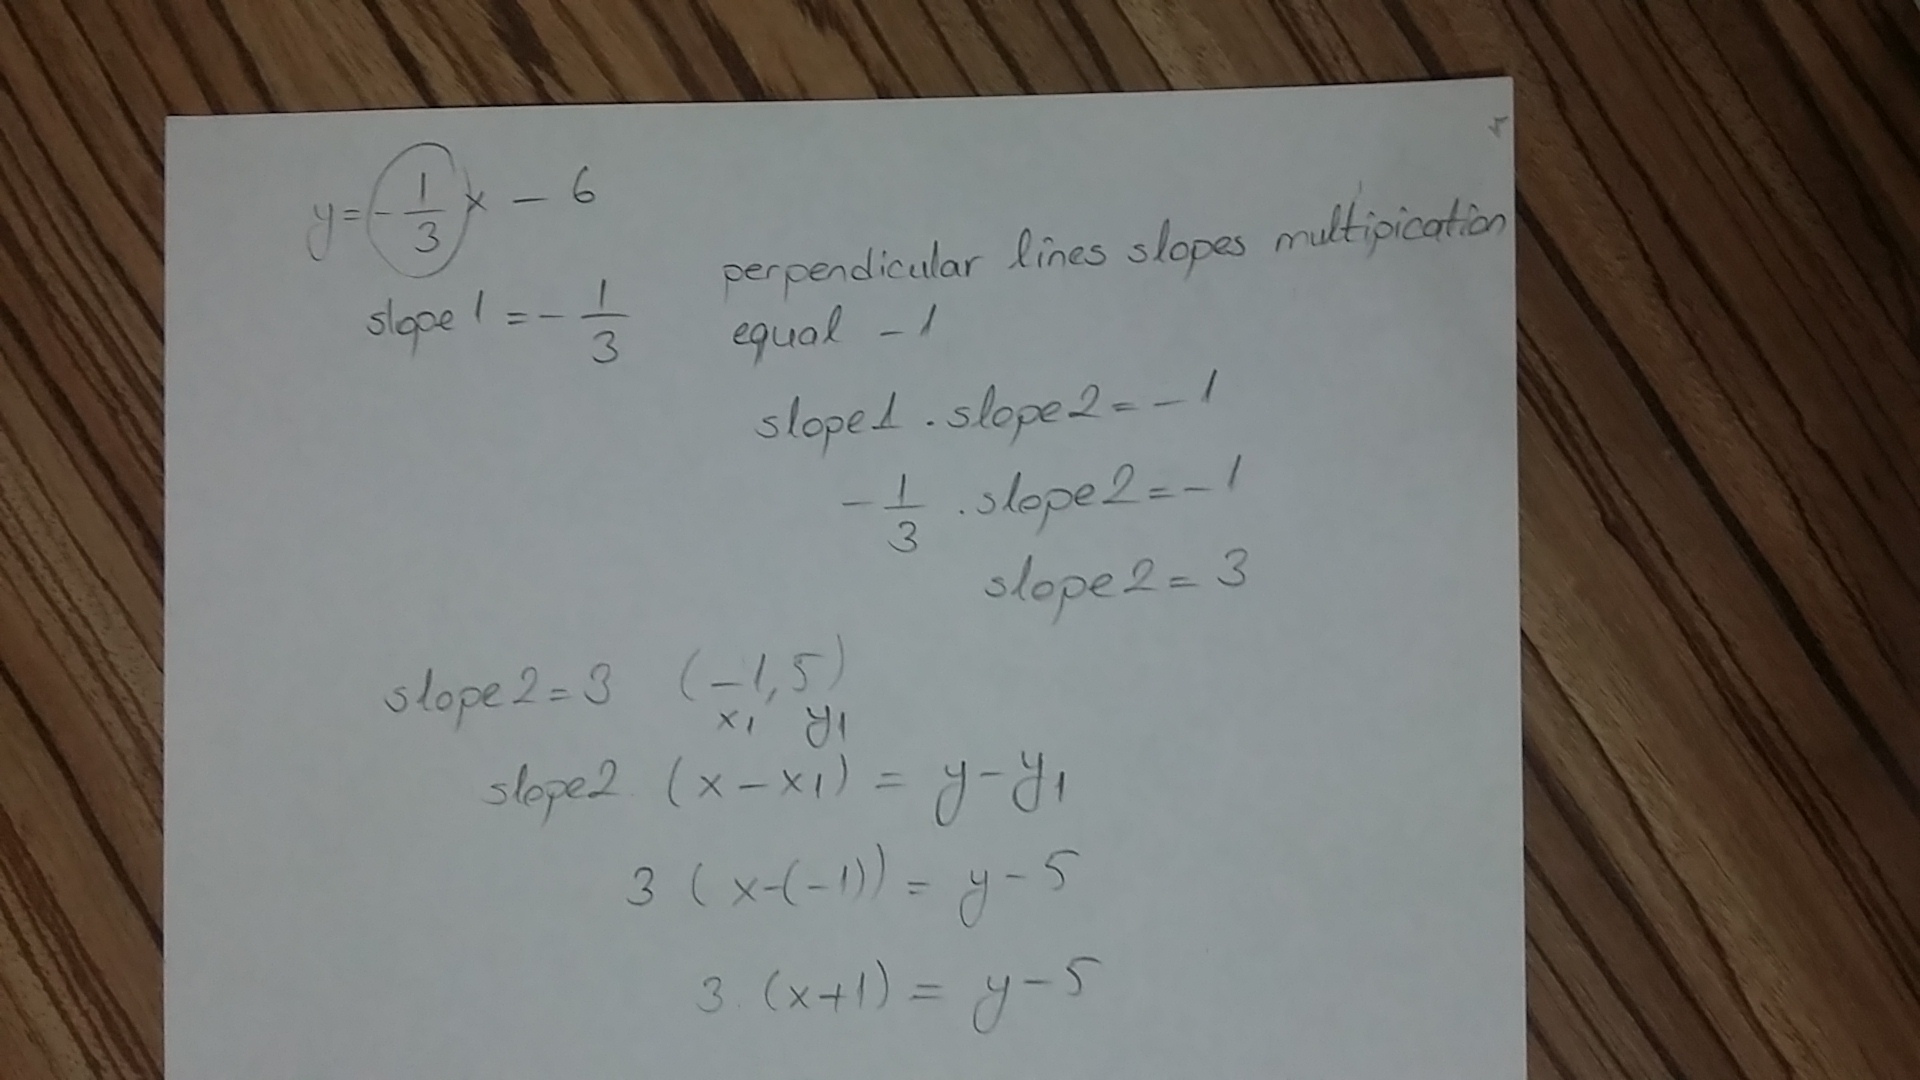 y = -1/3 x - 6
slope1 = - 1/3
perpendicular lines slopes multipication
equal -1
slope1 . slope2 = -1
- 1/3 . slope2 = -1
slope2 = 3
slope2 = 3 (-1, 5)
x1 y1
slope2. (x - x1) = y - y1
3 (x-(-1)) = y - 5
3. (x+1) = y - 5